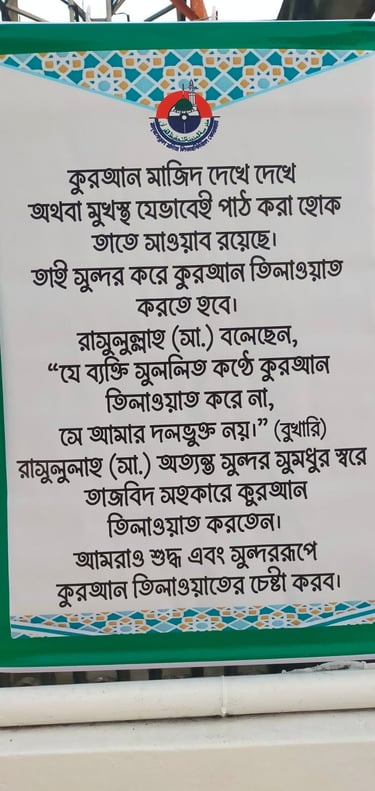 কুরআন মাজিদ দেখে দেখে
অথবা মুখস্থ যেভাবেই পাঠ করা হোক
তাতে সাওয়াব রয়েছে।
তাই সুন্দর করে কুরআন তিলাওয়াত
করতে হবে।
রাসুলুল্লাহ (সা.) বলেছেন,
“যে ব্যক্তি সুললিত কণ্ঠে কুরআন
তিলাওয়াত করে না,
সে আমার দলভুক্ত নয়।” (বুখারি)
রাসুলুলাহ (সা.) অত্যন্ত সুন্দর সুমধুর স্বরে
তাজবিদ সহকারে কুরআন
তিলাওয়াত করতেন।
আমরাও শুদ্ধ এবং সুন্দররূপে
কুরআন তিলাওয়াতের চেষ্টা করব।